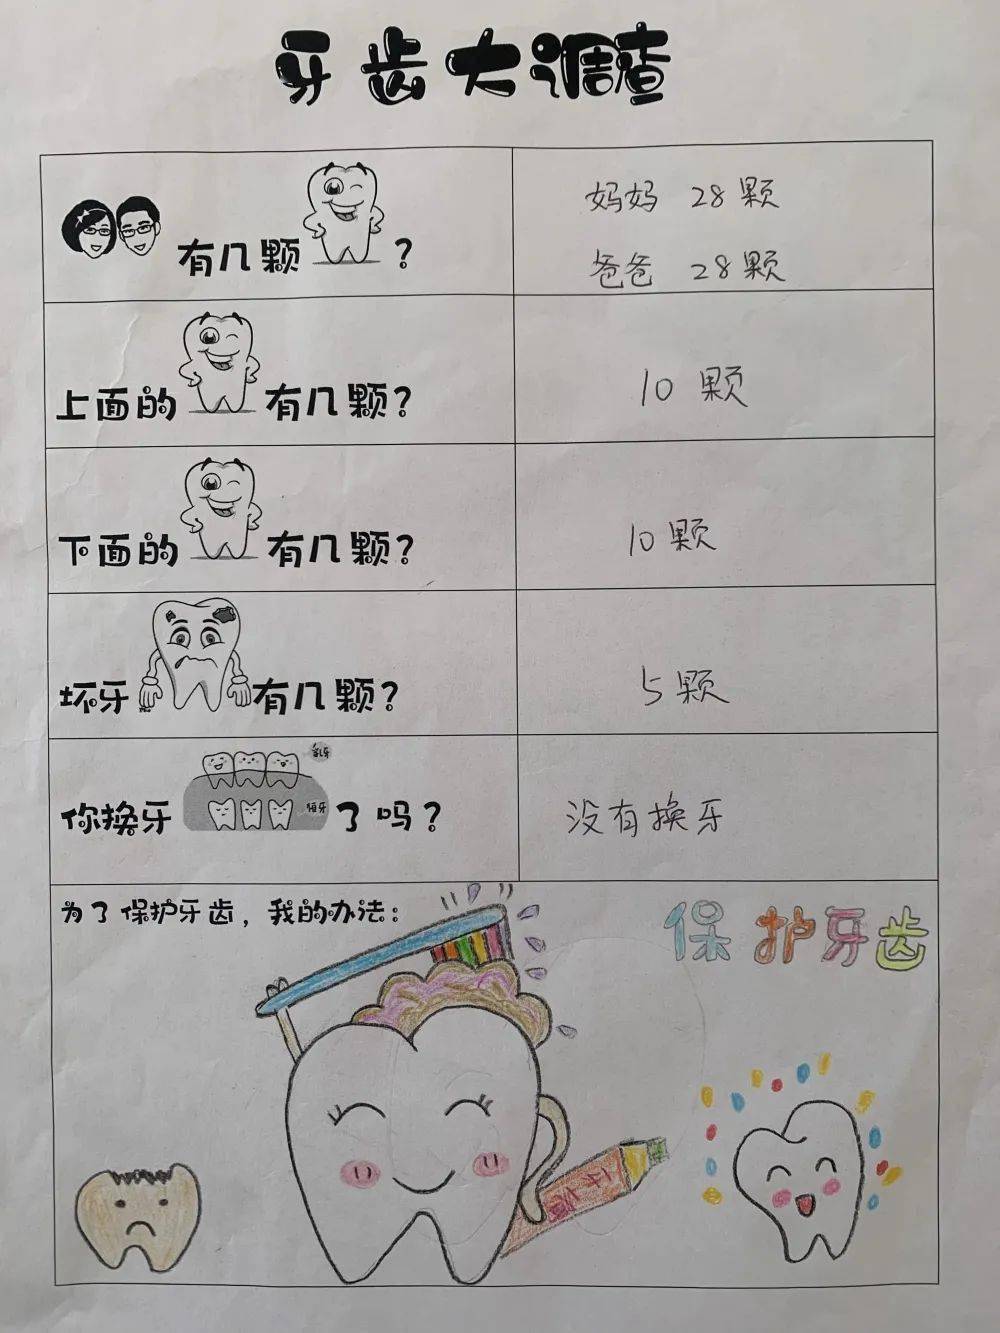 牙齿大调查
有几颗?
妈妈 28颗
爸爸 28颗
上面的有几颗?
10颗
下面的有几颗?
10颗
坏牙有几颗?
5颗
乳牙
恒牙
你换牙了吗?
没有换牙
为了保护牙齿,我的办法:
保护牙齿
牙膏